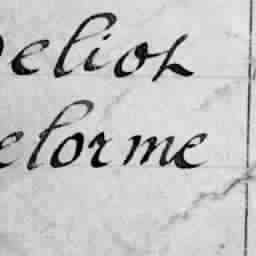 elior
elorme